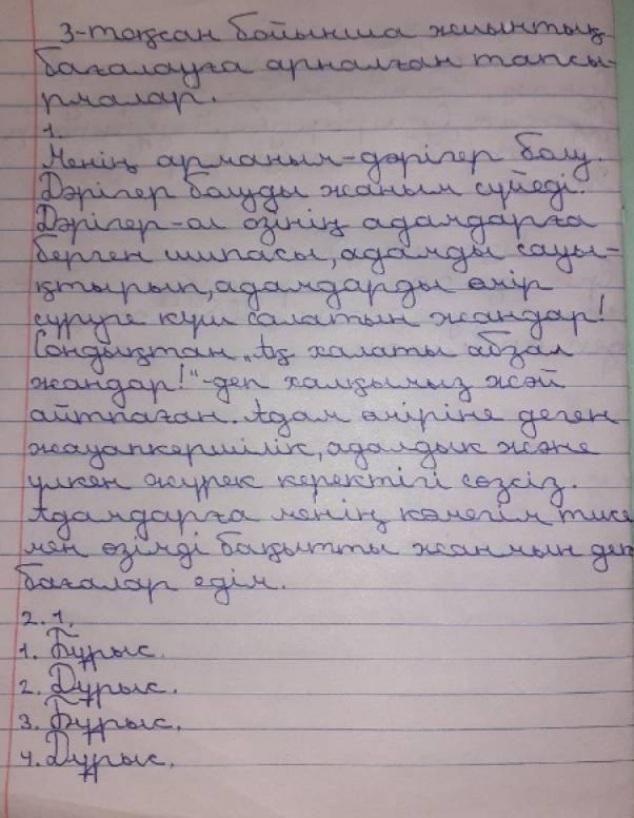 3-тоқсан бойынша жиынтық
бағалауға арналған тапсы-
рмалар.
1.
Менің арманым-дәрігер болу.
Дәрігер болуды жаным сүйеді.
Дәрігер-ол өзінің адамдарға
берген шипасы, адамды сауы-
қтырып, адамдарды өмір
сүруге күш салатын жандар!
Сондықтан „Ақ халаты абзал
жандар!"-деп халқымыз жәй
айтпаған. Адам өміріне деген
жауапкершілік, адалдык және
үлкен жүрек керектігі сөзсіз.
Адамдарға менің көмегім тисе
мен өзімді бақытты жанмын деп
бағалар едім.
2. 1.
1. Бұрыс.
2. Дұрыс.
3. Бұрыс.
4. Дұрыс.